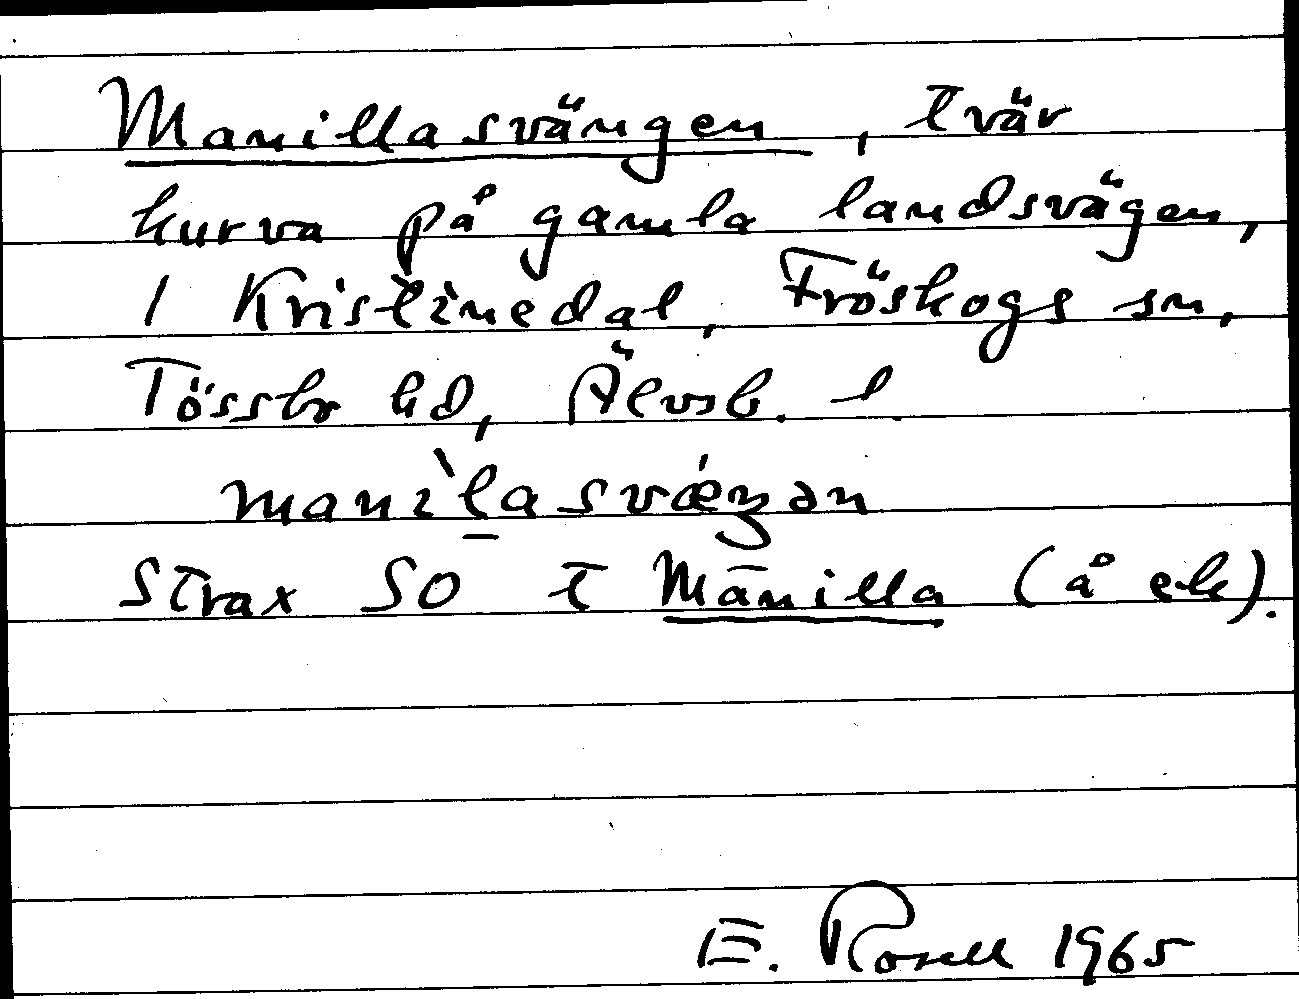 Manillasvängen, tvär
kurva på gamla landsvägen,
I Kristinedal, Fröskogs sn,
Tössbo hd, Älvsb. l.
manìl̲asvǽŋən
strax SO t Manilla (å ek).
E. Rosell 1965